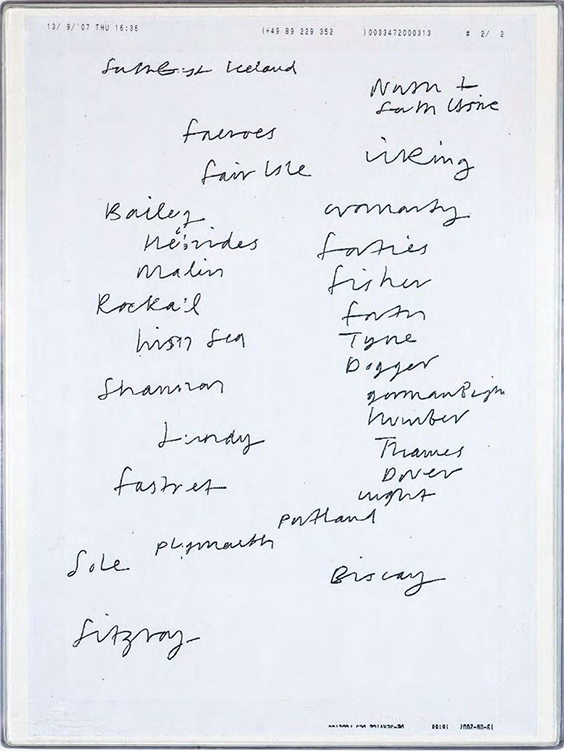 13/ 9/'07 THU 16:36 (+49 89 229 352 )0033472000313 # 2/ 2
South East Iceland
North +
South Utsire
Faeroes
Viking
Fair Isle
Bailey
Cromarty
Hebrides
Forties
Malin
Fisher
Rockall
Forth
Irish Sea
Tyne
Dogger
Shannon
German Bight
Humber
Lundy
Thames
Dover
Fastnet
Wight
Portland
Plymouth
Sole
Biscay
Fitzroy